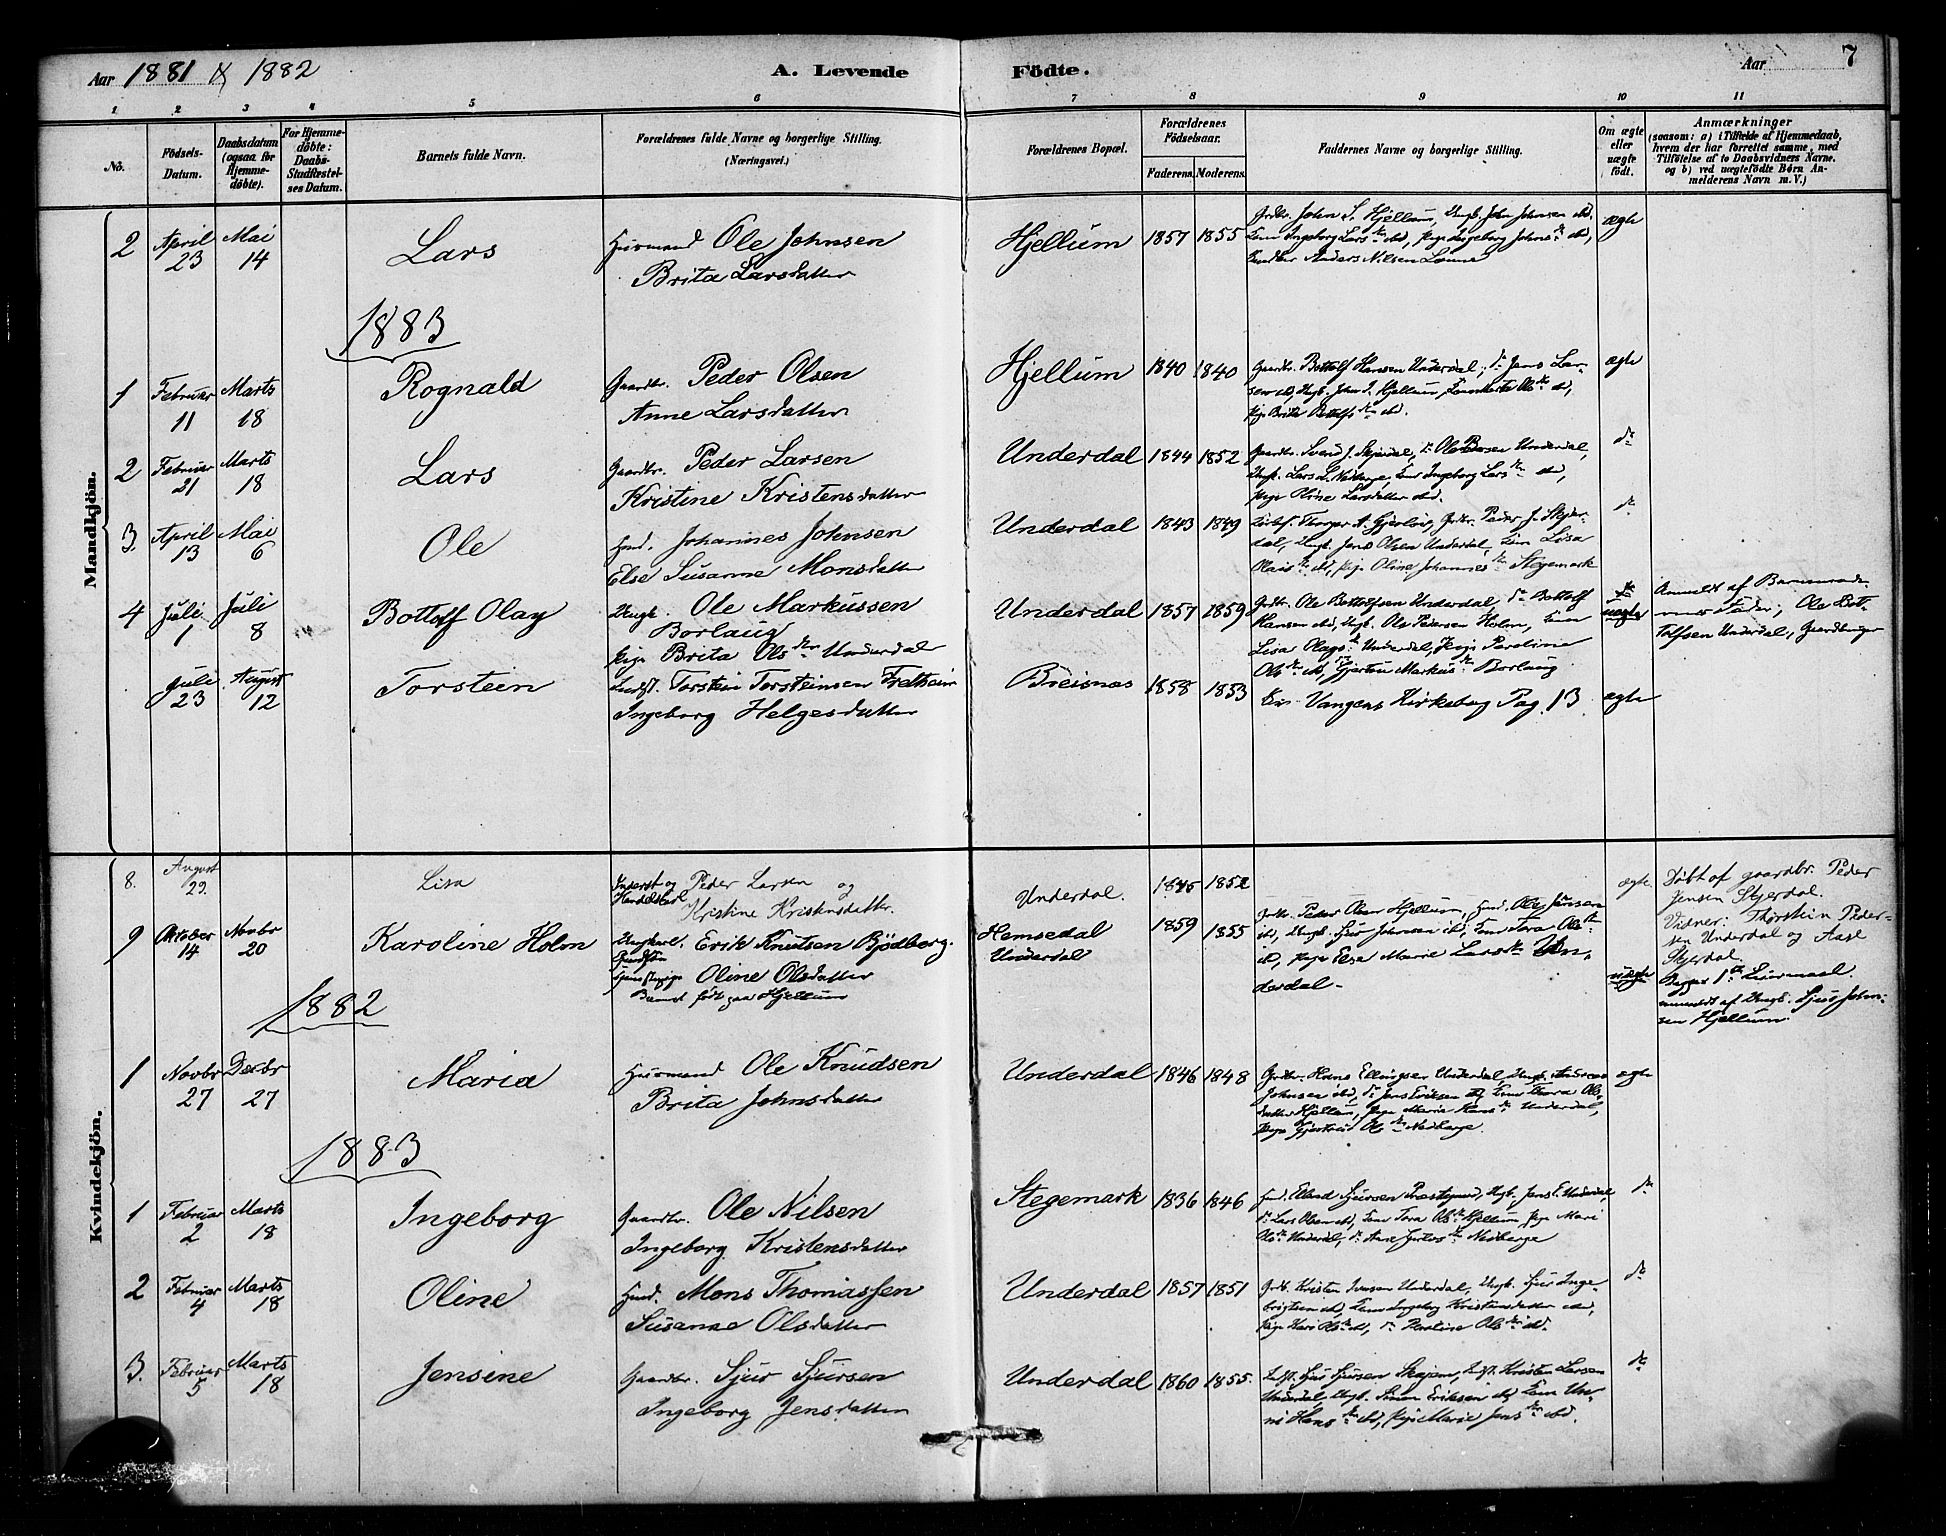 Aar 1881 & 1882
A. Levende
Födte.
Aar
7
1. 2 3 4 5 6 7 8 9 10 11
No.
Födsels-
Datum.
Daabsdatum
(ogsaa for
Hjemme-
döbte).
For Hjemme-
döbte:
Daabs-
Stadfæstel-
ses Datum.
Barnets fulde Navn.
Forældrenes fulde Navne og borgerlige Stilling.
(Næringsvei.)
Forældrenes Bopæl.
Forældrenes
Födselsaar.
Faderens. Moderens.
Faddernes Navne og borgerlige Stilling.
Om ægte
eller
uægte
födt.
Anmærkninger
(saasom: a) i Tilfælde af Hjemmedaab,
hvem der har forrettet samme, med
Tilföielse af to Daabsvidners Navne.
og b) ved uægtefödte Børn An-
melderens Navn m. V.)
Mandkjön.
2 April 23 Mai 14 Lars
Huusmand Ole Johnsen
Brita Larsdatter
Hjellum 1857 1855
Grdbr. John S. Hjellum, Ungk. John Johnsen ibd,
Kone Ingeborg Lars dtr ibd, Pige Ingeborg Johns dtr ibd,
Anders Nilsen
ægte
1883
1 Februar 11 Marts 18 Rognald
Gaardbr. Peder Olsen
Anne Larsdatter
Hjellum 1840 1840
Gaardbr. Bottolf Hansen Underdal, do Jens Lar-
sen ibd, Ungk. John J. Hjellum, Ols dtr ibd,
Pige Brita Bottolfs dtr ibd.
ægte
2 Februar 21 Marts 18 Lars
Gaardbr. Peder Larsen
Kristine Kristensdatter
Underdal 1844 1852
Gaardbr. Svend J. Skjerdal, do Ole Underdal,
Ungk. Lars L. Nedberge, Kone Ingeborg Lars dtr ibd,
Pige Oline Larsdatter ibd.
do
3. April 13 Mai 6 Ole
Hmd. Johannes Johnsen
Else Susanne Monsdatter
Underdal 1843 1849
Thorger A. Gjerløv, Grdbr. Peder J. Skjer-
dal, Ungk. Jens Olsen Underdal, Kone Lisa
Olais dtr ibd, Pige Oline Johannes dtr Stegemark
do
4 Juli 1 Juli 8 Bottolf Olay
Ungk. Ole Markussen
Borlaug
Pige Brita Ols dtr Underdal
Underdal 1857 1859
Grdbr. Ole Bottolfsen Underdal, do Bottolf
Hansen ibd, Ungk. Ole Pedersen Holm, Kone
Lisa Olays Underdal, Pige Paroline
Ols dtr ibd, Gjertrue Markus dtr Borlaug
uægte
Anmeldt af Barnemode-
rens Fader, Ole Bot-
tolfsen Underdal, Gaardbruger
Juli 23 August 12 Torstein
Torstein Torsteinsen Fretheim
Ingeborg Helgesdatter
Breisnæs 1858 1853
Vangens Kirkebog Pag. 13
ægte
Kvindekjön.
8. August 29. Lisa
Inderst og
Handelskarl Peder Larsen og
Kristine Kristensdatter.
Underdal. 1845 1852
ægte.
Døbt af gaardbr. Peder
Jensen Skjerdal.
Vidner: Thorstein Peder-
sen Underdal og Aase
Skjerdal.
9 Oktober 14 Novbr 20 Karoline Holm
Ungkarl. Erik Knutsen Bjödberg.
Oline Olsdatter
Barnet født paa Hjellum
Hemsedal
Underdal
1859 1855
Grdbr. Peder Olsen Hjellum, Hmd. Ole Jensen
ibd, Ungk. Sjur Johnsen ibd, Kone Tora Ols dtr
ibd, Pige Else Marie Lars dtr Un-
derdal-
uægte
Begges 1ste Leiermaal.
anmeldt af Ungk. Sjur John-
sen Hjellum.
1882
1 Novbr 27 Decbr 27 Maria
Huusmand Ole Knudsen
Brita Johnsdatter
Underdal 1846 1848
Grdbr. Hans Ellingsen Underdal, Ungk. Andreas
Johnsen ibd, do Jens Eriksen ibd, Kone Thora Ols-
datter Hjellum, Pige Marie Hans dtr Underdal,
Pige Gjertrud Ols dtr Nedberge.
ægte
1883
1 Februar 2 Marts 18 Ingeborg
Gaardbr. Ole Nilsen
Ingeborg Kristensdatter
Stegemark 1836 1846
Hmd. Elland Sjursen Præstegaard, Ungk. Jens E. Underdal,
do Lars Olsen ibd, Kone Tora Ols dtr Hjellum, Pige Mari
Ols dtr Underdal, do Anna dtr Nedberge
do
2 Februar 4 Marts 18 Oline
Hmd. Mons Thomassen
Susanne Olsdatter
Underdal 1857 1851
Grdb. Kristen Iversen Underdal, Ungk. Sjur Inge-
brigtsen ibd, Kone Ingeborg Kristensdatter ibd,
Pige Kari Ols dtr ibd, do Paroline Ols dtr ibd.
do
3. Februar 5 Marts 18 Jensine
Gaardbr. Sjur Sjursen
Ingeborg Jensdatter
Underdal 1860 1855.
Sjur Sjursen Skajem, Kristen Larsen
Underdal, Ungk. Simon Eriksen ibd, Kone Un-
ni Hans dtr ibd, Pige Marie Jens dtr ibd.
do